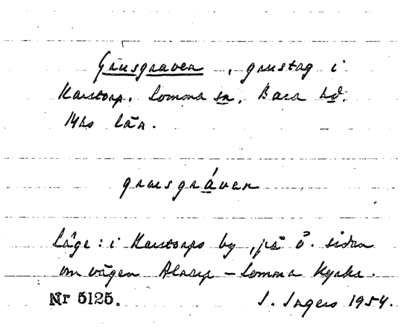 Grusgraven, grustag i
Karstorp, Lomma sn, Bara hd.
Mhs län.
grusgráven
Läge: i Karstorps by, på ö. sidan
om vägen Alnarp – Lomma kyrka.
Nr 5125. I. Ingers 1954.